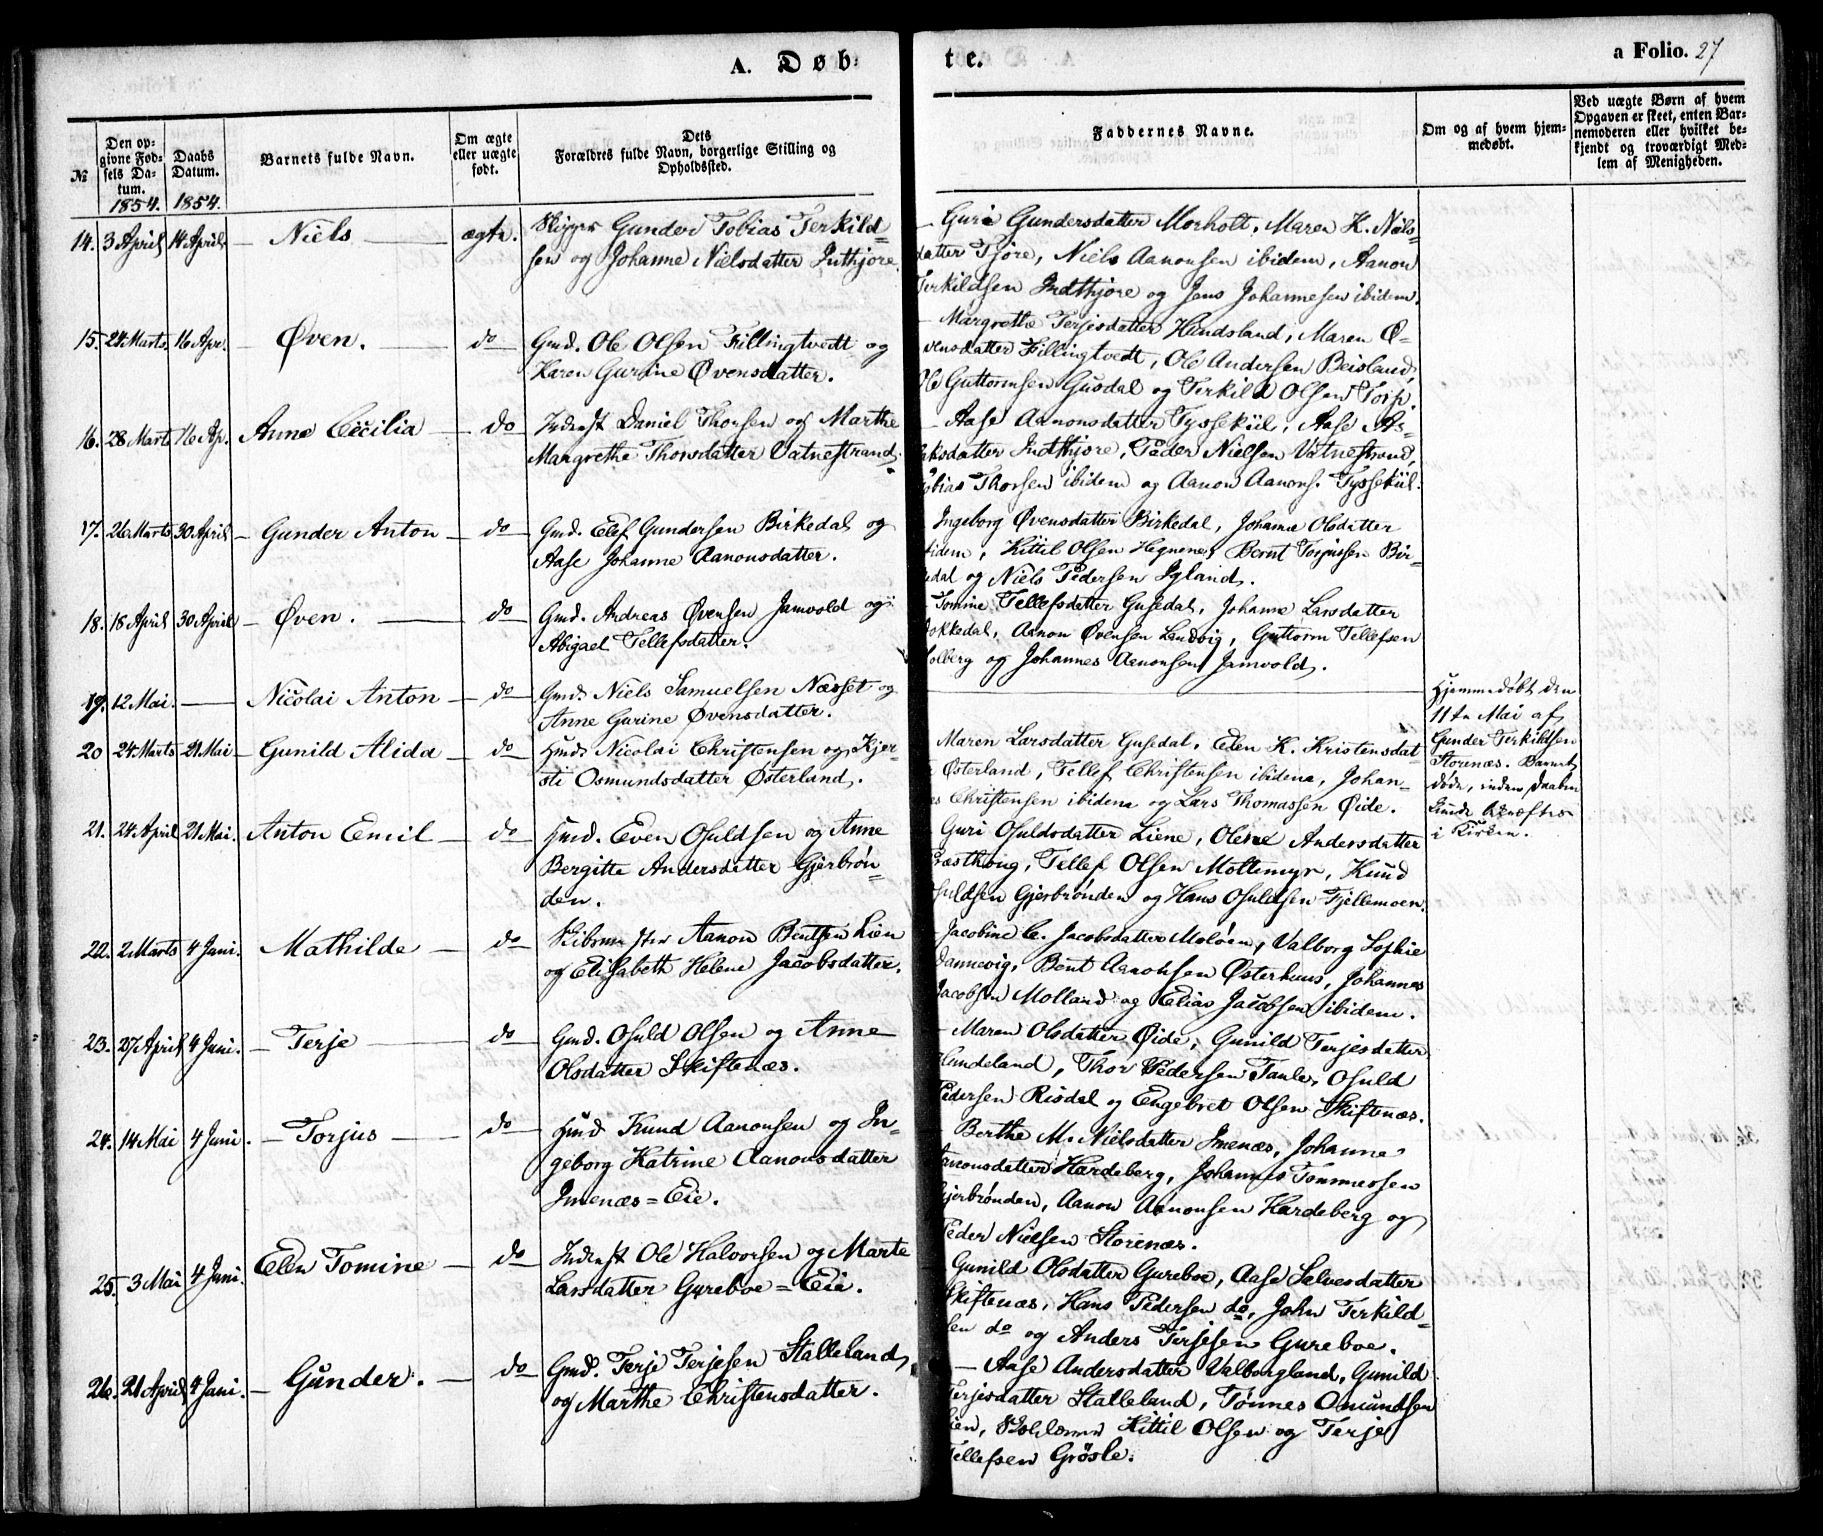 A. Døb-
te.
a Folio. 27
№
Den opgivne Fødsels Datum.
1854.
Daabs Datum.
1854.
Barnets fulde Navn.
Om ægte eller uægte født.
Dets
Forældres fulde Navn, borgerlige Stilling og Opholdssted.
Faddernes Navne.
Om og af hvem hjemmedøbt.
Ved uægte Børn af hvem Opgaven er skeet, enten Barnemoderen eller hvilket bekjendt og troværdigt Medlem af Menigheden.
14. 3 April 14 April — Niels — ægte. Skipper Gunder Tobias Terkild=
sen og Johanne Nielsdatter Indtjore.
— Guri Gundersdatter Morholt, Maren K. Niels-
datter Tjøre, Niels Aanonsen ibidem, Aanon
Terkildsen Indthjore og Jens Johannesen ibidem.
15. 24 Marts 16 Apr. — Øven. — do Gmd. Ole Olsen Fillingtvedt og
Karen Gurine Øvensdatter.
— Margrethe Terjesdatter Hundsland, Maren Ø-
vensdatter Fillingtvedt, Ole Andersen Beisland,
Ole Guttormsen Gusdal og Terkild Olsen Torp.
16. 28 Marts 16 Ap. Anne Cecilia — do Inderst Daniel Thorsen og Marthe
Margrethe Thorsdatter Vatnestrand.
— Aase Aanonsdatter Tyssekiil, Aase As-
laksdatter Indthjore, Peder Nielsen Vatnestrand,
Tobias Thorsen ibidem og Aanon Aanons. Tyssekiil.
17. 26 Marts 30 April — Gunder Anton — do Gmd. Elef Gundersen Birkedal og
Aase Johanne Aanonsdatter.
Ingeborg Øvensdatter Birkedal, Johanne Olsdatter
ibidem, Kittil Olsen Hegnene, Bernt Torjussen Bir-
kedal og Niels Pedersen Igland.
18. 18 April 30 April — Øven. — do Gmd. Andreas Øvensen Jamvold og
Abigael Tellefsdatter.
Tomine Tellefsdatter Gusedal, Johanne Larsdatter
Dokkedal, Aanon Øvensen Landvig, Guttorm Tellefsen
Solberg og Johannes Aanonsen Jamvold.
19. 12 Mai. — Nicolai Anton — do Gmd. Niels Samuelsen Næsset og
Anne Gurine Øvensdatter.
Hjemmedøbt den
11te Mai af
Gunder Terkildsen
Storenæs. Barnet
døde, inden Daaben
kunde bekræftes
i Kirken.
20 24 Marts 21 Mai — Gunild Alida — do Hmd. Nicolai Christensen og Kjer-
sti Osmundsdatter Østerland.
Maren Larsdatter Gusedal, Elen K. Kristensdat-
ter Østerland, Tellef Christensen ibidem, Johan-
nes Christensen ibidem og Lars Thomassen Øide.
21. 24 April 21 Mai. Anton Emil — do Hmd. Even Osuldsen og Anne
Bergitte Andersdatter Gjerbrøn-
den.
Guri Osuldsdatter Liene, Olene Andersdatter
Præsthoug, Tellef Olsen Moltemyr, Knud
Osuldsen Gjerbrønden og Hans Osuldsen Fjellemoen.
22. 2 Marts 4 Juni. Mathilde — do Skibstømmer Aanon Bentsen Lien
og Elisabeth Helene Jacobsdatter.
— Jacobine C. Jacobsdatter Moløen, Valborg Sophie
Dannevig, Bent Aanonsen Østerhuus, Johannes
Jacobsen Molland og Elias Jacobsen ibidem.
23. 27 April 4 Juni. — Terje — do Gmd. Osuld Olsen og Anne
Olsdatter Skiftenæs.
— Maren Olsdatter Øide, Gunild Terjesdatter
Hundeland, Thor Pedersen Tanle, Osuld
Pedersen Risdal og Engebret Olsen Skiftenæs.
24. 14 Mai 4 Juni. — Torjus — do Hmd Knud Aanonsen og In-
geborg Katrine Aanonsdatter
Imenæs=Eie.
Berthe M. Nielsdatter Imenæs, Johanne
Aanonsdatter Hardeberg, Johannes Tommessen
Gjerbrønden, Aanon Aanonsen Hardeberg og
Peder Nielsen Storenæs.
25. 3 Mai 4 Juni. Elen Tomine — do Inderst Ole Halvorsen og Marte
Larsdatter Gureboe=Eie.
Gunild Olsdatter Gureboe, Aase Salvesdatter
Skiftenæs, Hans Pedersen do, John Terkild-
sen do og Anders Terjesen Gureboe.
26. 21 April 4 Juni. — Gunder. — do Gmd. Terje Terjesen Stalleland
og Marthe Christensdatter.
— Aase Andersdatter Valborgland, Gunild
Terjesdatter Stalleland, Tønnes Omundsen
Lien, Kittil Olsen og Terje
Tellefsen Grøsle.